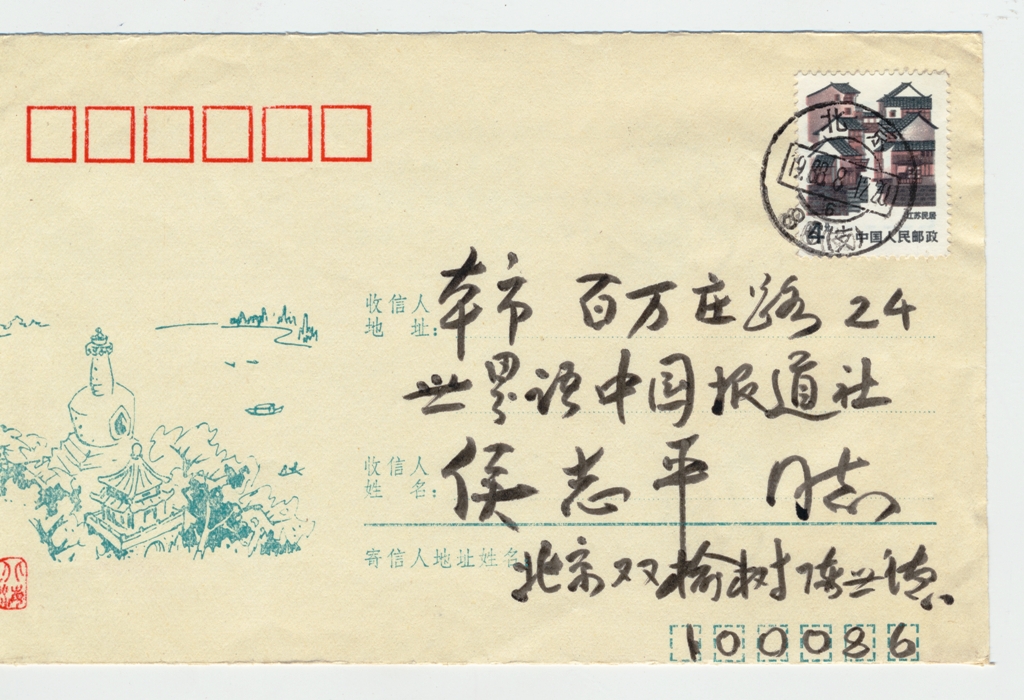 北京
1988.8.12.20
江苏民居
中国人民邮政
收信人
地 址:
本市 百万庄路 24
世界语中国报道社
收信人
姓 名:
侯志平 同志
寄信人地址姓名
北京双榆树 陈世德
100086